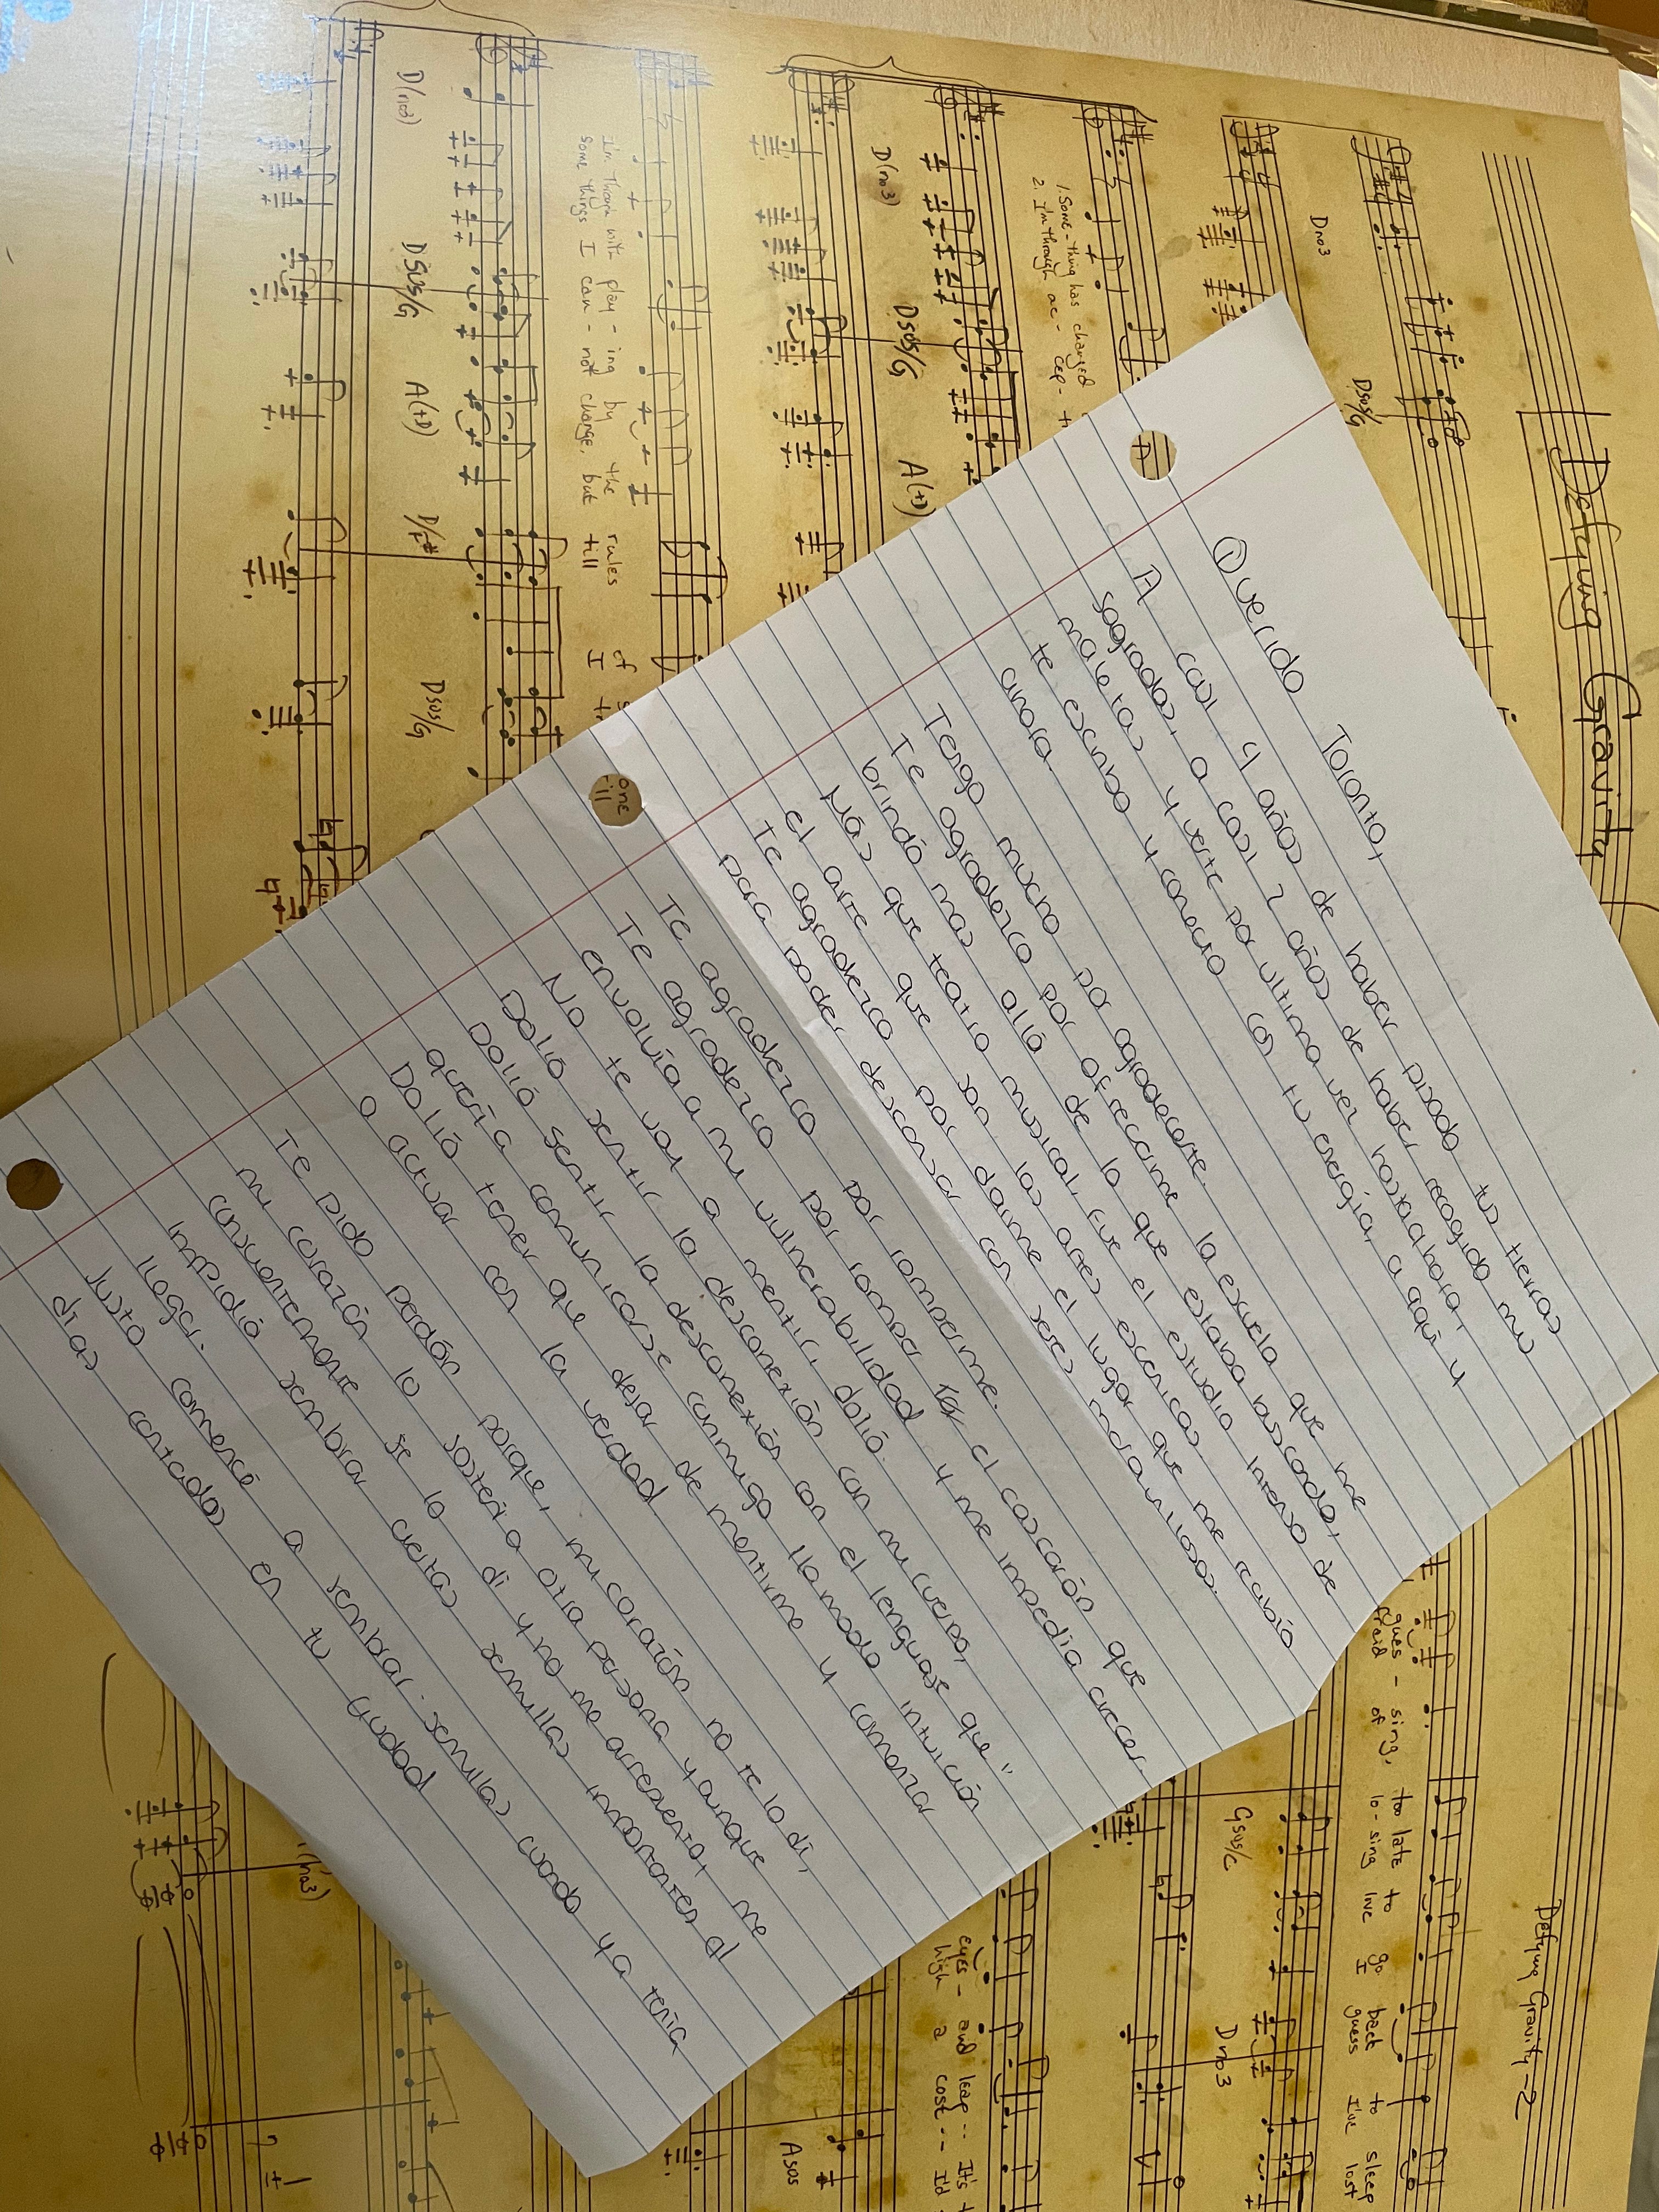 Defying Gravity
Dno3 Dsus/G
1. Some-thing has changed
2. I'm through ac- cep-
D(no3) Dsus/G A(+D)
I'm through with play - ing by the rules of
some things I can - not change, but till I
D(no3) Dsus/G A(+D) D/F# Dsus/G
① Querido Toronto,
A casi 4 años de haber pisado tus tierras
sagradas, a casi 2 años de haber recogido mis
maletas y verte por ultima vez hasta ahora,
te escribo y conecto con tu energía, a aquí y
ahora.
Tengo mucho por agradecerte.
Te agradezco por ofrecerme la escuela que me
brindó mas allá de lo que estaba buscando,
Más que teatro musical, fue el estudio intenso de
el arte que son las artes escenicas.
Te agradezco por darme el lugar que me recibió
para poder descansar con seres maravillosos.
Te agradezco por romperme.
Te agradezco por romper el cascarón que
envolvía a mi vulnerabilidad y me impedia crecer.
No te voy a mentir, dolió.
Dolió sentir la desconexión con mi cuerpo,
Dolió sentir la desconexión con el lenguaje que
quería comunicarse conmigo llamado intuición
Dolió tener que dejar de mentirme y comenzar
a actuar con la verdad.
Te pido perdón porque, mi corazón no te lo di,
mi corazón lo sostenía otra persona y aunque
conscientemente se lo di y no me arrepentí, me
impidió sembrar ciertas semillas importantes al
llegar.
Justo comencé a sembrar semillas cuando ya tenía
días contados en tu ciudad
Defying Gravity -2
ques - sing, too late to go back to sleep
fraid of lo-sing love I guess I've lost
Gsus/C Dno3
eyes - and leap -- It's
high a cost -- I'd
Asus
(no3)
one